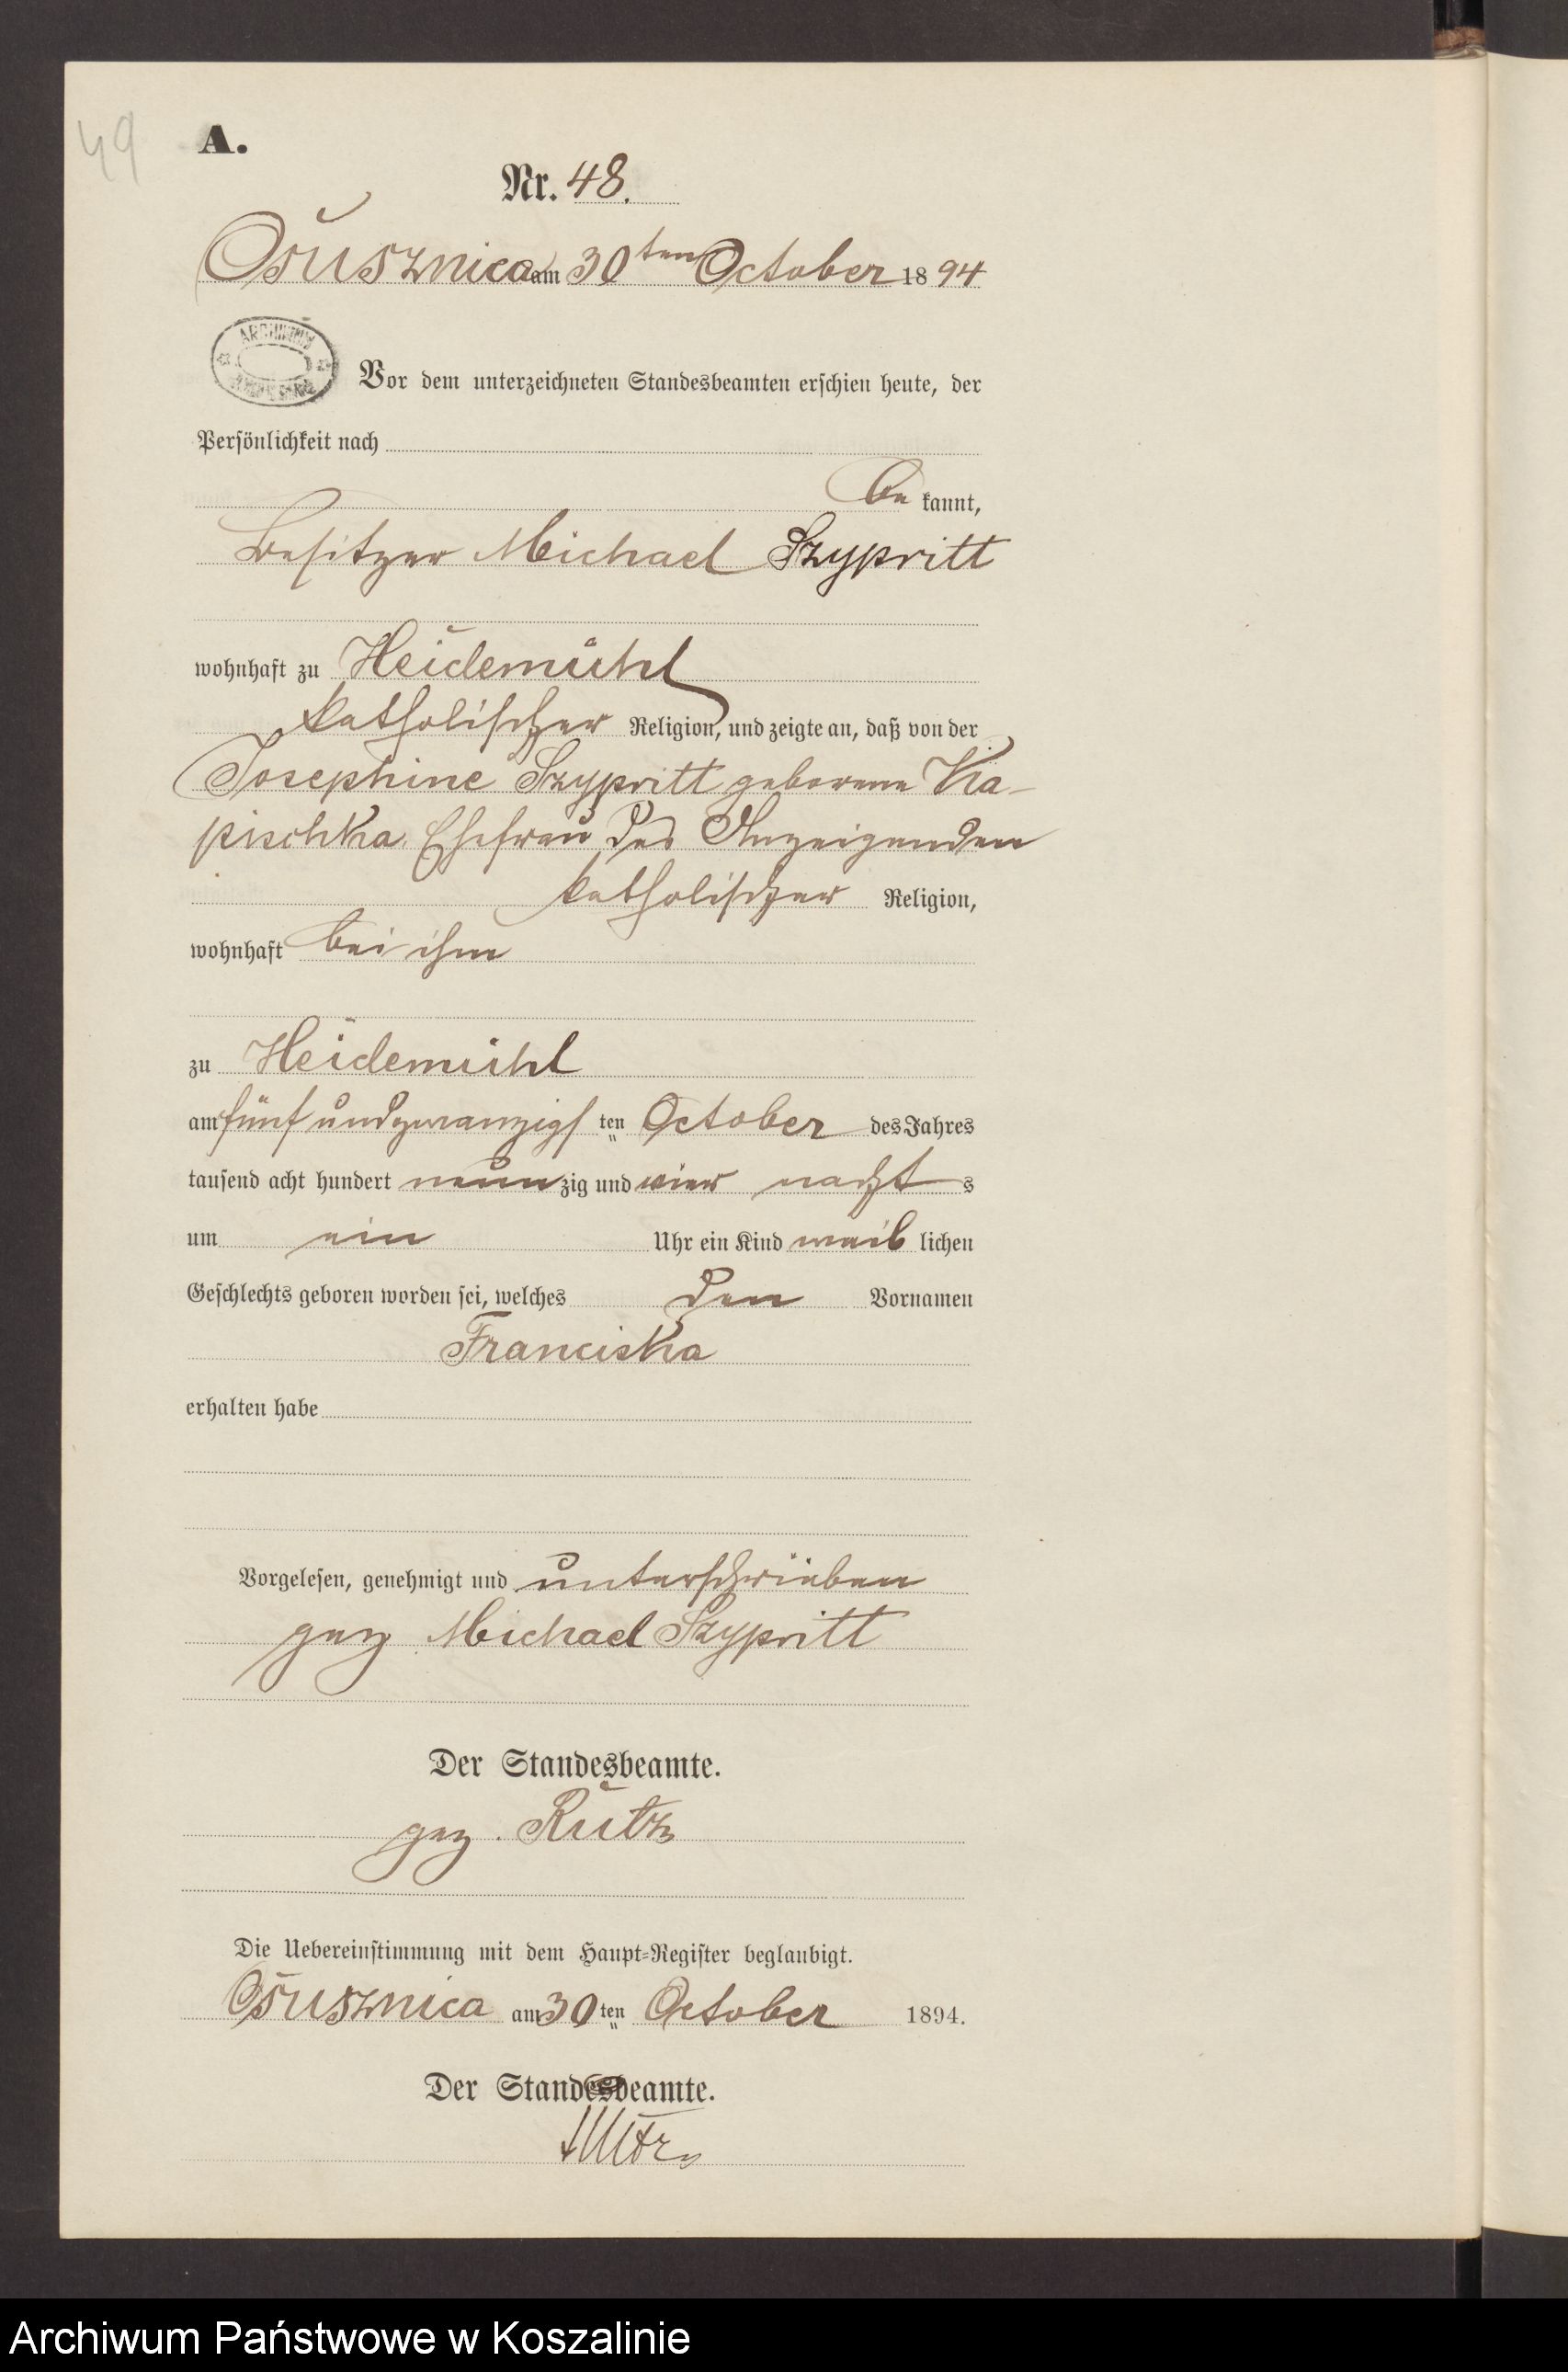 49
A.
Nr. 48.
Osusznica am 30ten October 1894
ARCHIWUM
Vor dem unterzeichneten Standesbeamten erschien heute, der
Persönlichkeit nach
be kannt,
Besitzer Michael Szypritt
wohnhaft zu Heidemühl
katholischer Religion, und zeigte an, daß von der
Josephine Szypritt geborene Kia-
pischka Ehefrau des Anzeigenden
katholischer Religion,
wohnhaft bei ihm
zu Heidemühl
am fünf und zwanzigsten October des Jahres
tausend acht hundert neunzig und vier nachts
um ein Uhr ein Kind weiblichen
Geschlechts geboren worden sei, welches den Vornamen
Franciska
erhalten habe
Vorgelesen, genehmigt und unterschrieben
gez Michael Szypritt
Der Standesbeamte.
gez. Rutz
Die Uebereinstimmung mit dem Haupt-Register beglaubigt.
Osusznica am 30ten October 1894.
Der Standesbeamte.
Rutz
Archiwum Państwowe w Koszalinie